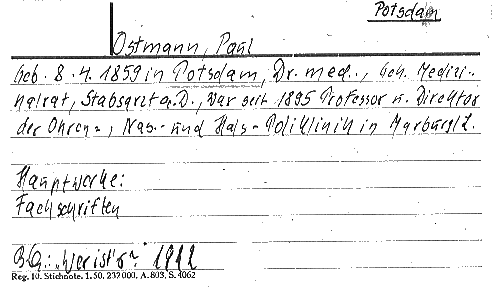 Potsdam
Ostmann, Paul
Geb. 8. 4. 1859 in Potsdam, Dr. med., Geh. Medizi-
nalrat, Stabsarzt a. D., war seit 1895 Professor u. Direktor
der Ohren-, Nas.- und Hals-Poliklinik in Marburg/L.
Hauptwerke:
Fachschriften
B.Qu.: „Wer ist's?" 1912
Reg. 10. Stichnote. 1. 50. 232000. A. 803, S. 4062